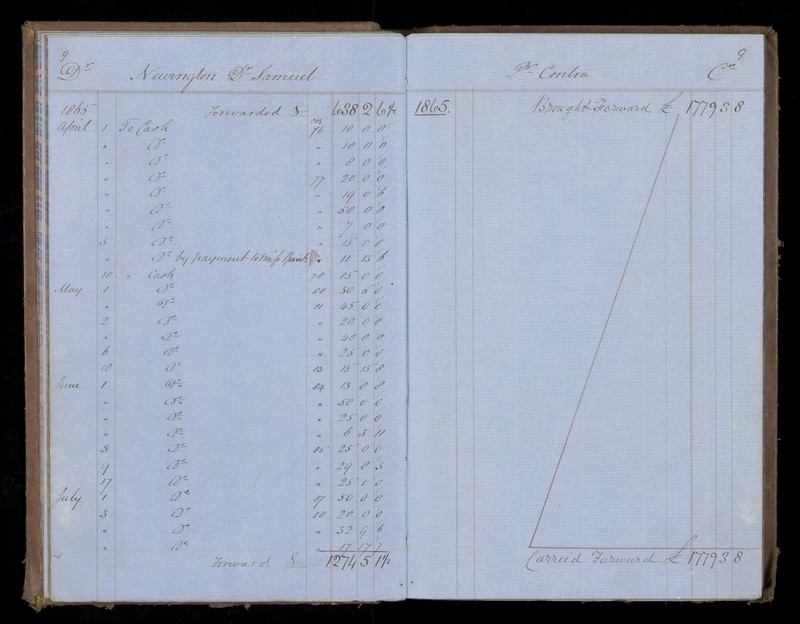 9
Dr Newington Dr Samuel
1865 Forwarded £ 638 2 6½
April 1 To Cash CB 76 10 0 0
" Do " 10 0 0
" Do " 8 0 0
" Do 77 20 0 0
" Do " 19 0 6
" Do " 50 0 0
" Do " 7 0 0
5 Do " 15 0 0
" Do by payment to Miss " 11 13 6
10 " Cash 78 15 0 0
May 1 Do 80 50 5 0
" Do 81 45 0 0
2 Do " 20 0 0
" Do " 40 0 0
6 Do " 25 0 0
10 Do 83 15 15 8
June 1 Do 84 13 0 0
" Do " 50 0 0
" Do " 25 0 0
" Do " 6 3 11
3 Do 85 25 0 0
9 Do " 29 0 5
17 Do " 25 0 0
July 1 Do 87 50 0 0
3 Do 88 20 0 0
" Do " 32 9 6
" Do 17 17 7
Forward £ 1274 5 1½
9
Pr Contra Cr
1865. Brought Forward £ 1779 3 8
Carried Forward £ 1779 3 8